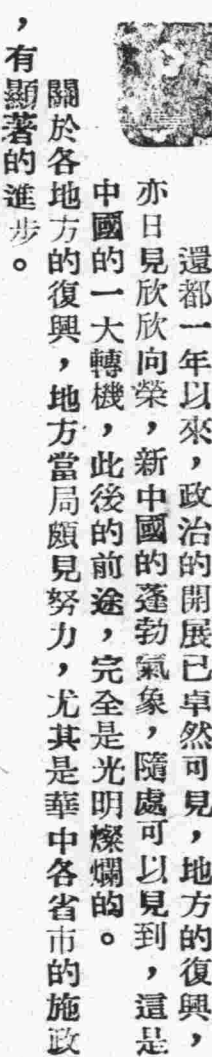 還都一年以來，政治的開展已卓然可見，地方的復興，
亦日見欣欣向榮，新中國的蓬勃氣象，隨處可以見到，這是
中國的一大轉機，此後的前途，完全是光明燦爛的。
關於各地方的復興，地方當局頗見努力，尤其是華中各省市的施政
，有顯著的進步。